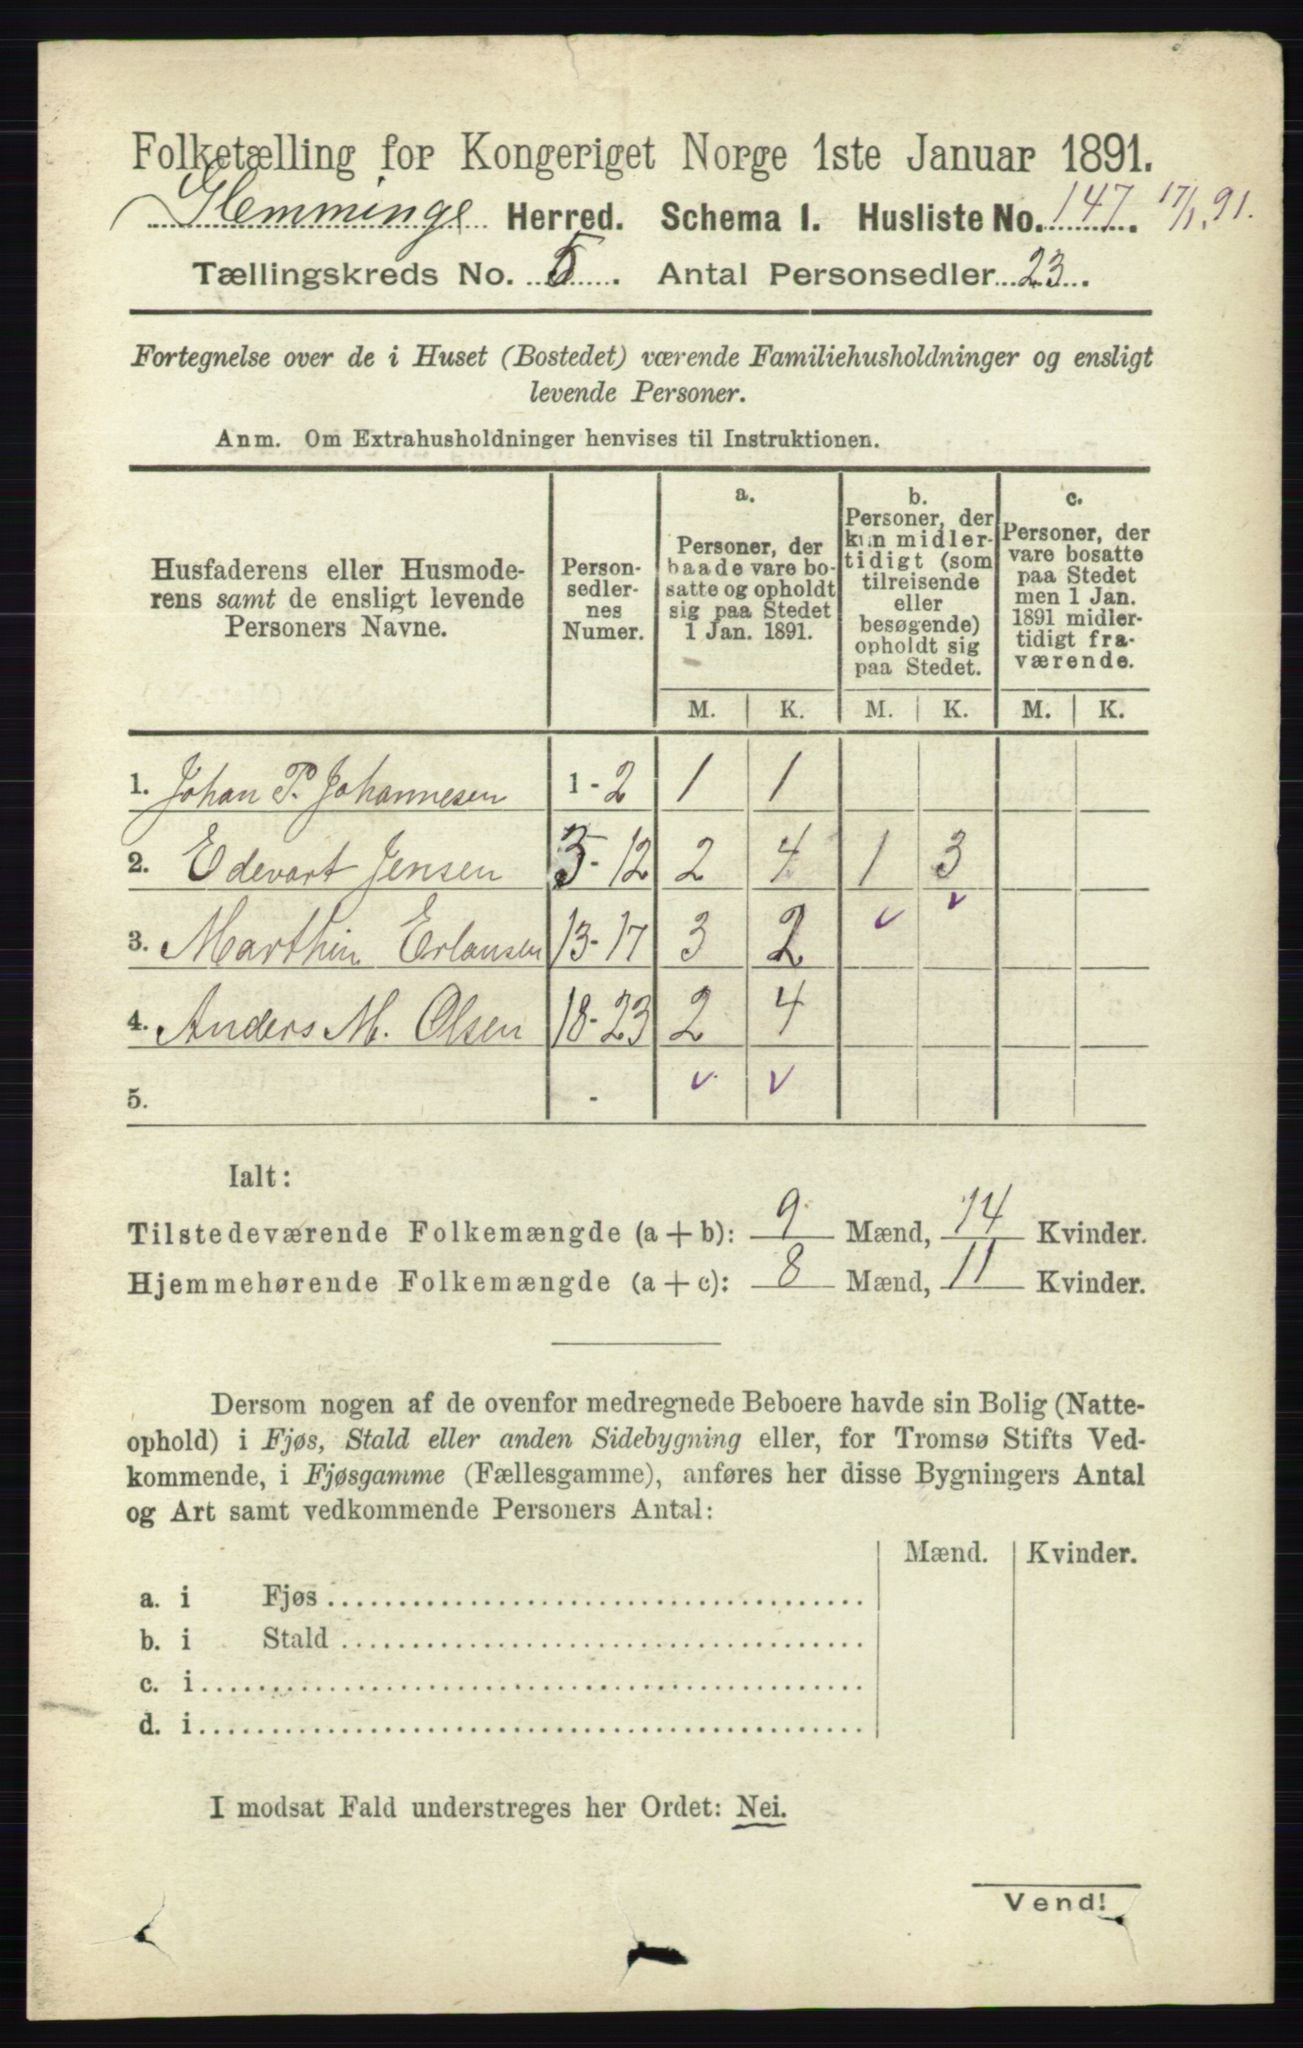 Folketælling for Kongeriget Norge 1ste Januar 1891.
Glemminge Herred. Schema 1. Husliste No. 147. 17/1.91.
Tællingskreds No. 5. Antal Personsedler 23.
Fortegnelse over de i Huset (Bostedet) værende Familiehusholdninger og ensligt
levende Personer.
Anm. Om Extrahusholdninger henvises til Instruktionen.
Husfaderens eller Husmode-
rens samt de ensligt levende
Personers Navne.
Person-
sedler-
nes
Numer.
a.
Personer, der
baade vare bo-
satte og opholdt
sig paa Stedet
1 Jan. 1891.
b.
Personer, der
kun midler-
tidigt (som
tilreisende
eller
besøgende)
opholdt sig
paa Stedet.
c.
Personer, der
vare bosatte
paa Stedet
men 1 Jan.
1891 midler-
tidigt fra-
værende.
M. K. M. K. M. K.
1. Johan P. Johannesen 1-2 1 1
2. Edevart Jensen 3-12 2 4 1 3
3. Marthin Erlansen 13-17 3 2
4. Anders M. Olsen 18-23 2 4
5. -
Ialt:
Tilstedeværende Folkemængde (a + b): 9 Mænd, 14 Kvinder.
Hjemmehørende Folkemængde (a + c): 8 Mænd, 11 Kvinder.
Dersom nogen af de ovenfor medregnede Beboere havde sin Bolig (Natte-
ophold) i Fjøs, Stald eller anden Sidebygning eller, for Tromsø Stifts Ved-
kommende, i Fjøsgamme (Fællesgamme), anføres her disse Bygningers Antal
og Art samt vedkommende Personers Antal:
Mænd. Kvinder.
a. i Fjøs
b. i Stald
c. i
d. i
I modsat Fald understreges her Ordet: Nei.
Vend!